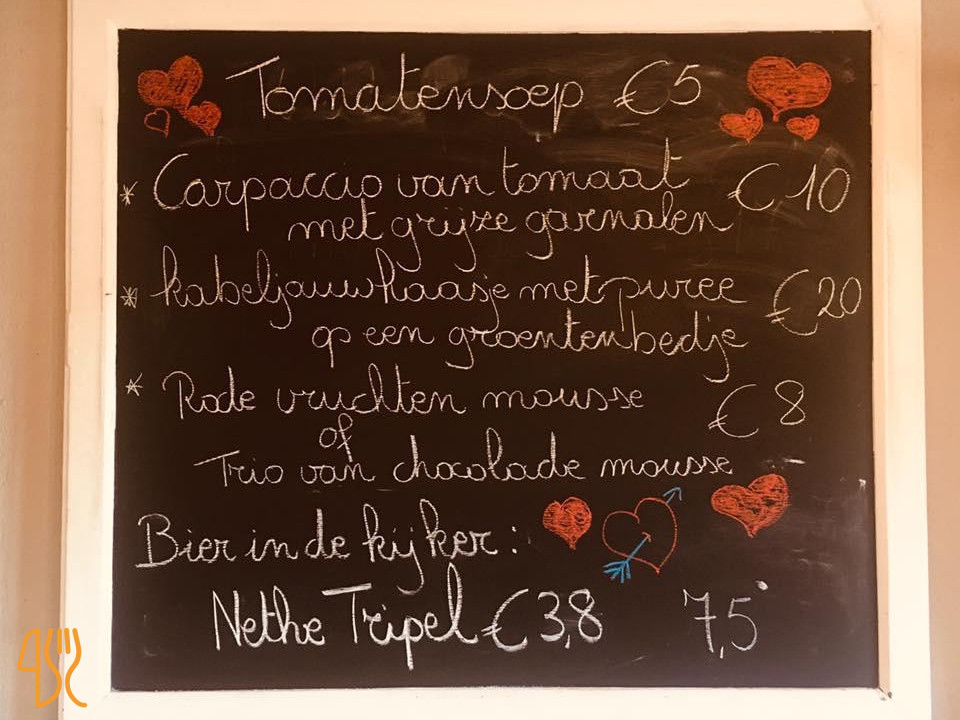 Tomatensoep €5
* Carpaccio van tomaat €10
met grijze garnalen
* kabeljauwhaasje met puree €20
op een groentenbedje
* Rode vruchten mousse €8
of
Trio van chocolade mousse
Bier in de kijker:
Nethe Tripel €3,8 7,5°